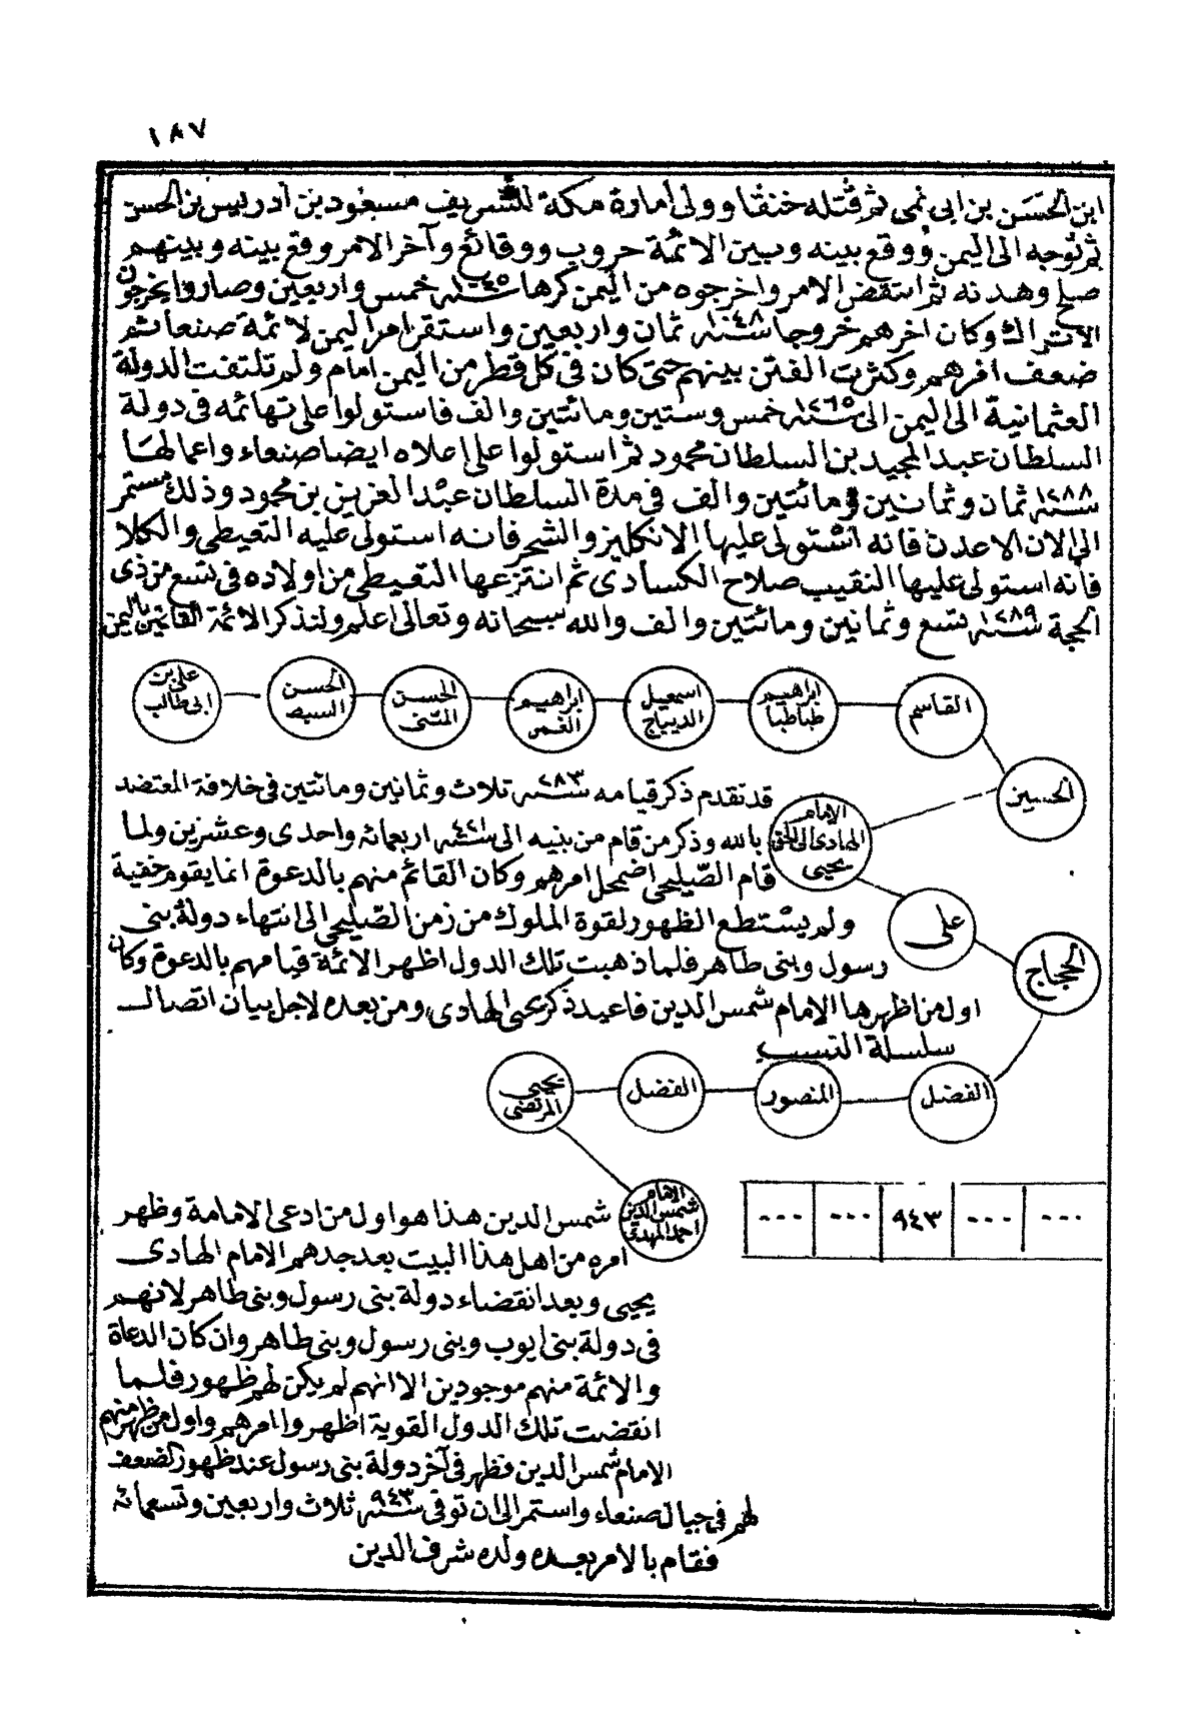 ١٨٧
ابن الحسن بن ابى نمى ثم قتله خنقا وولى أمارة مكة للشريف مسعود بن ادريس بن الحسن
ثم توجه الى اليمن ووقع بينه وبين الائمة حروب ووقائع وآخر الامر وقع بينه وبينهم
صلح وهدنه ثم انتقض الامر واخرجوه من اليمن كرها سنة ١٠٤٥ خمس واربعين وصاروا يخرجون
الاتراك وكان اخرهم خروجا سنة ١٠٤٨ ثمان واربعين واستقر امر اليمن لائمة صنعا ثم
ضعف امرهم وكثرت الفتن بينهم حتى كان فى كل قطر من اليمن امام ولم تلتفت الدولة
العثمانية الى اليمن الى سنة ١٢٦٥ خمس وستين ومائتين والف فاستولوا على تهائمه فى دولة
السلطان عبد المجيد بن السلطان محمود ثم استولوا على اعلاه ايضا صنعاء واعمالها
سنة ١٢٨٨ ثمان وثمانين ومائتين والف فى مدة السلطان عبد العزيز بن محمود وذلك مستمر
الى الان الا عدن فانه استولى عليها الانكليز والشحر فانه استولى عليه القعيطى والكلا
فانه استولى عليها النقيب صلاح الكسادى ثم انتزعها القعيطى من اولاده فى تسع من ذى
الحجة سنة ١٢٨٩ تسع وثمانين ومائتين والف والله سبحانه وتعالى اعلم ولنذكر الائمة القائمين باليمن
القاسم
ابراهيم طباطبا
اسمعيل الديباج
ابراهيم الغمر
الحسن المثنى
الحسن السبط
على بن ابى طالب
الحسين
الامام الهادى الى الحق يحيى
قد تقدم ذكر قيامه سنة ٢٨٣ ثلاث وثمانين ومائتين فى خلافة المعتضد
بالله وذكر من قام من بنيه الى سنة ٤٢١ اربعمائه واحدى وعشرين ولما
قام الصّليحى اضمحل امرهم وكان القائم منهم بالدعوة انما يقوم خفية
ولم يستطع الظهور لقوة الملوك من زمن الصّليحى الى انتهاء دولة بنى
رسول وبنى طاهر فلما ذهبت تلك الدول اظهر الائمة قيامهم بالدعوة وكان
اول من اظهرها الامام شمس الدين فاعيد ذكر يحيى الهادى ومن بعده لاجل بيان اتصال
سلسلة النسب
على
الحجاج
الفضل
المنصور
الفضل
يحيى المرتضى
الامام شمس الدين احمد المهدى
--- --- ٩٤٣ --- ---
شمس الدين هذا هو اول من ادعى الامامة وظهر
امره من اهل هذا البيت بعد جدهم الامام الهادى
يحيى وبعد انقضاء دولة بنى رسول وبنى طاهر لانهم
فى دولة بنى ايوب وبنى رسول وبنى طاهر وان كان الدعاة
والائمة منهم موجودين الا انهم لم يكن لهم ظهور فلما
انقضت تلك الدول القوية اظهروا امرهم واول من ظهر منهم
الامام شمس الدين فظهر فى آخر دولة بنى رسول عند ظهور الضعف
لهم فى جبال صنعاء واستمر الى ان توفى سنة ٩٤٣ ثلاث واربعين وتسعمائة
فقام بالامر بعده ولده شرف الدين